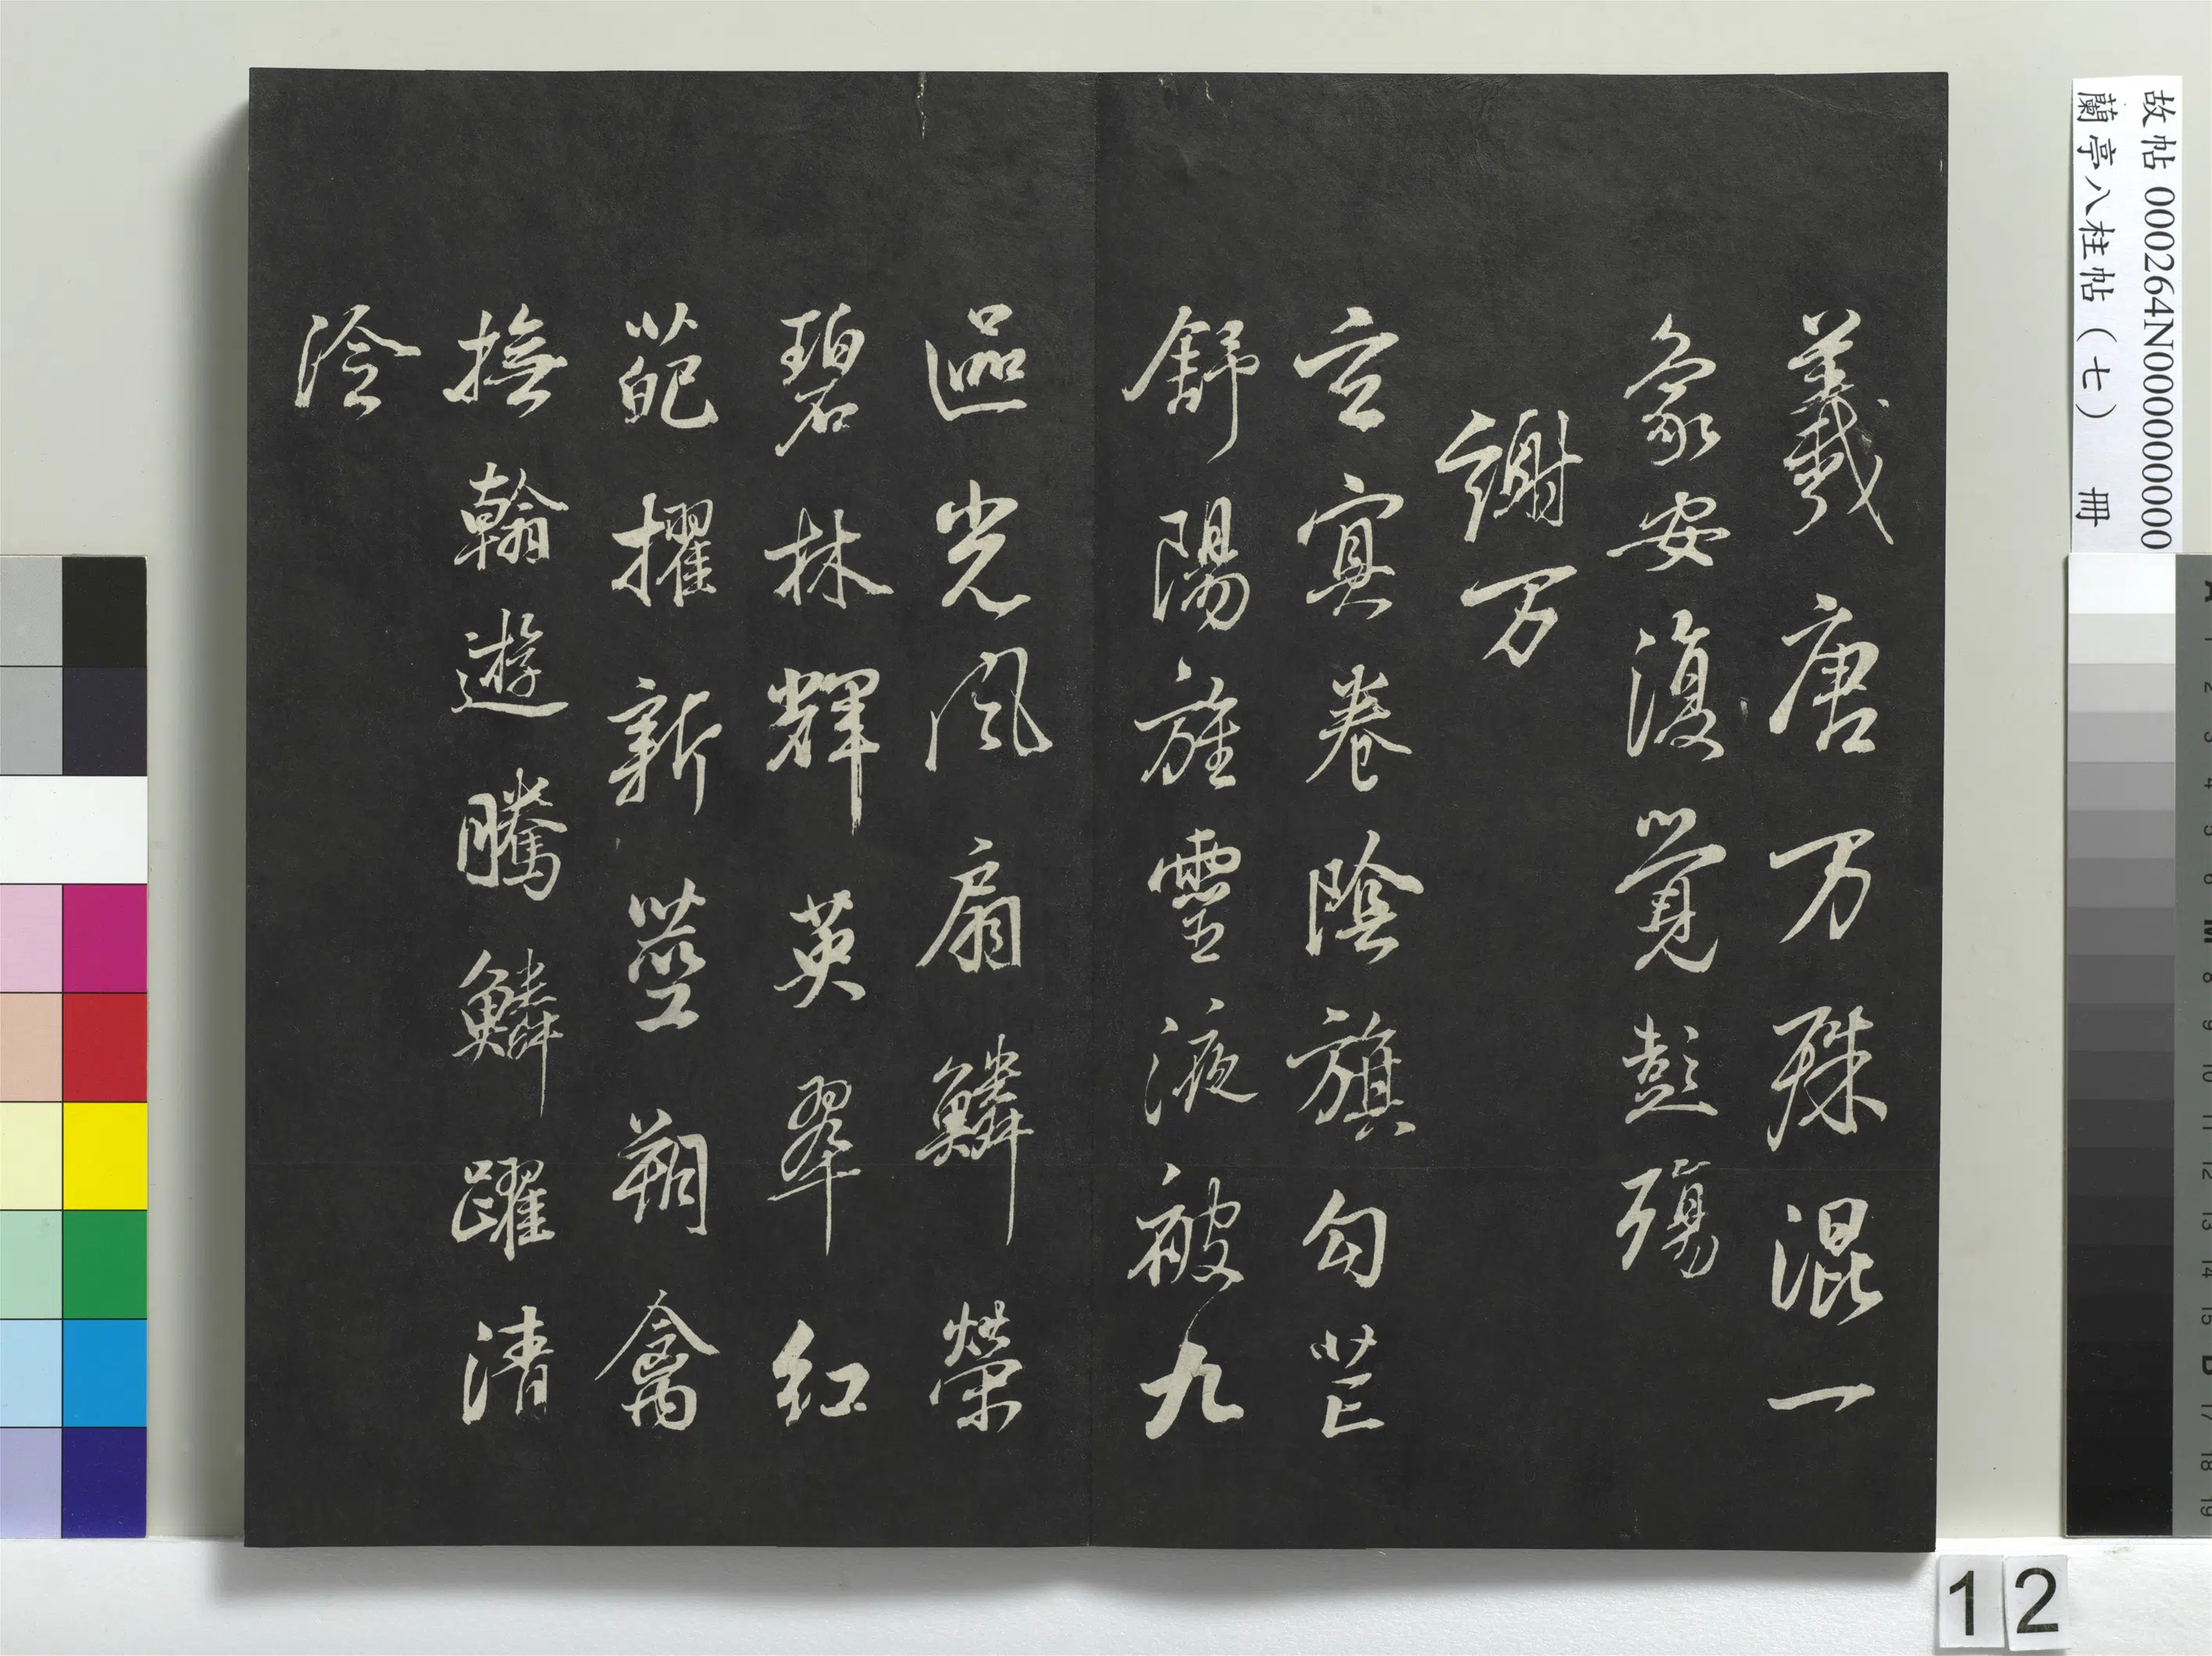 羲唐万殊混一
象安復覺彭殤
謝万
玄冥卷陰旗勾芒
舒陽旌靈液被九
區光風扇鱗榮
碧林輝英翠紅
葩擢新莖翔禽
撫翰遊騰鱗躍清
泠
故帖 000264N000000000
蘭亭八柱帖（七） 冊
12